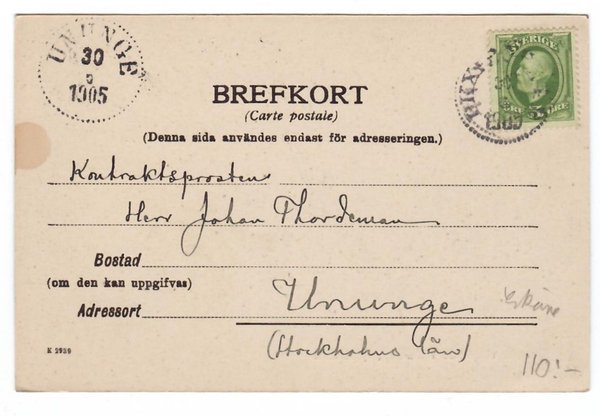 UNUNGE
30
5
1905
SVERIGE
5 ÖRE
1905
BREFKORT
(Carte postale)
(Denna sida användes endast för adresseringen.)
Kontraktsprosten
Herr Johan Thordeman
Bostad
(om den kan uppgifvas)
Adressort Ununge
(Stockholms län)
K 2939
110:-